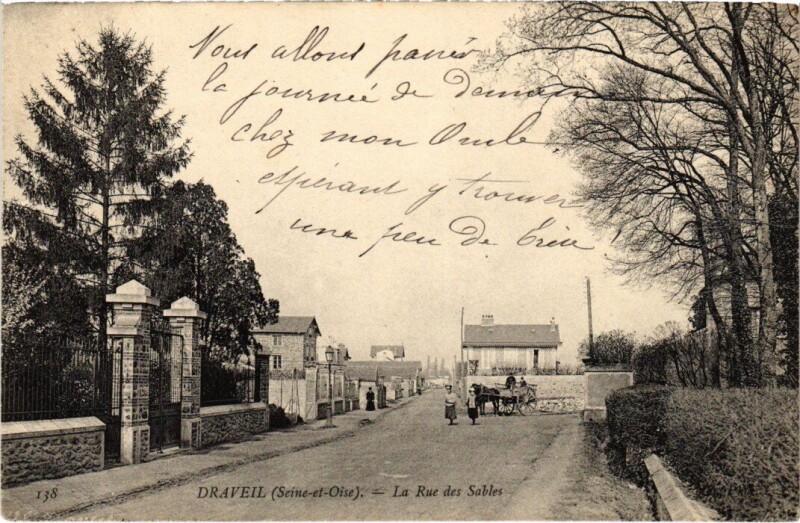 Nous allons passer
la journée de Demain
chez mon Oncle
espérant y trouver
une peu de
138 DRAVEIL (Seine-et-Oise). — La Rue des Sables